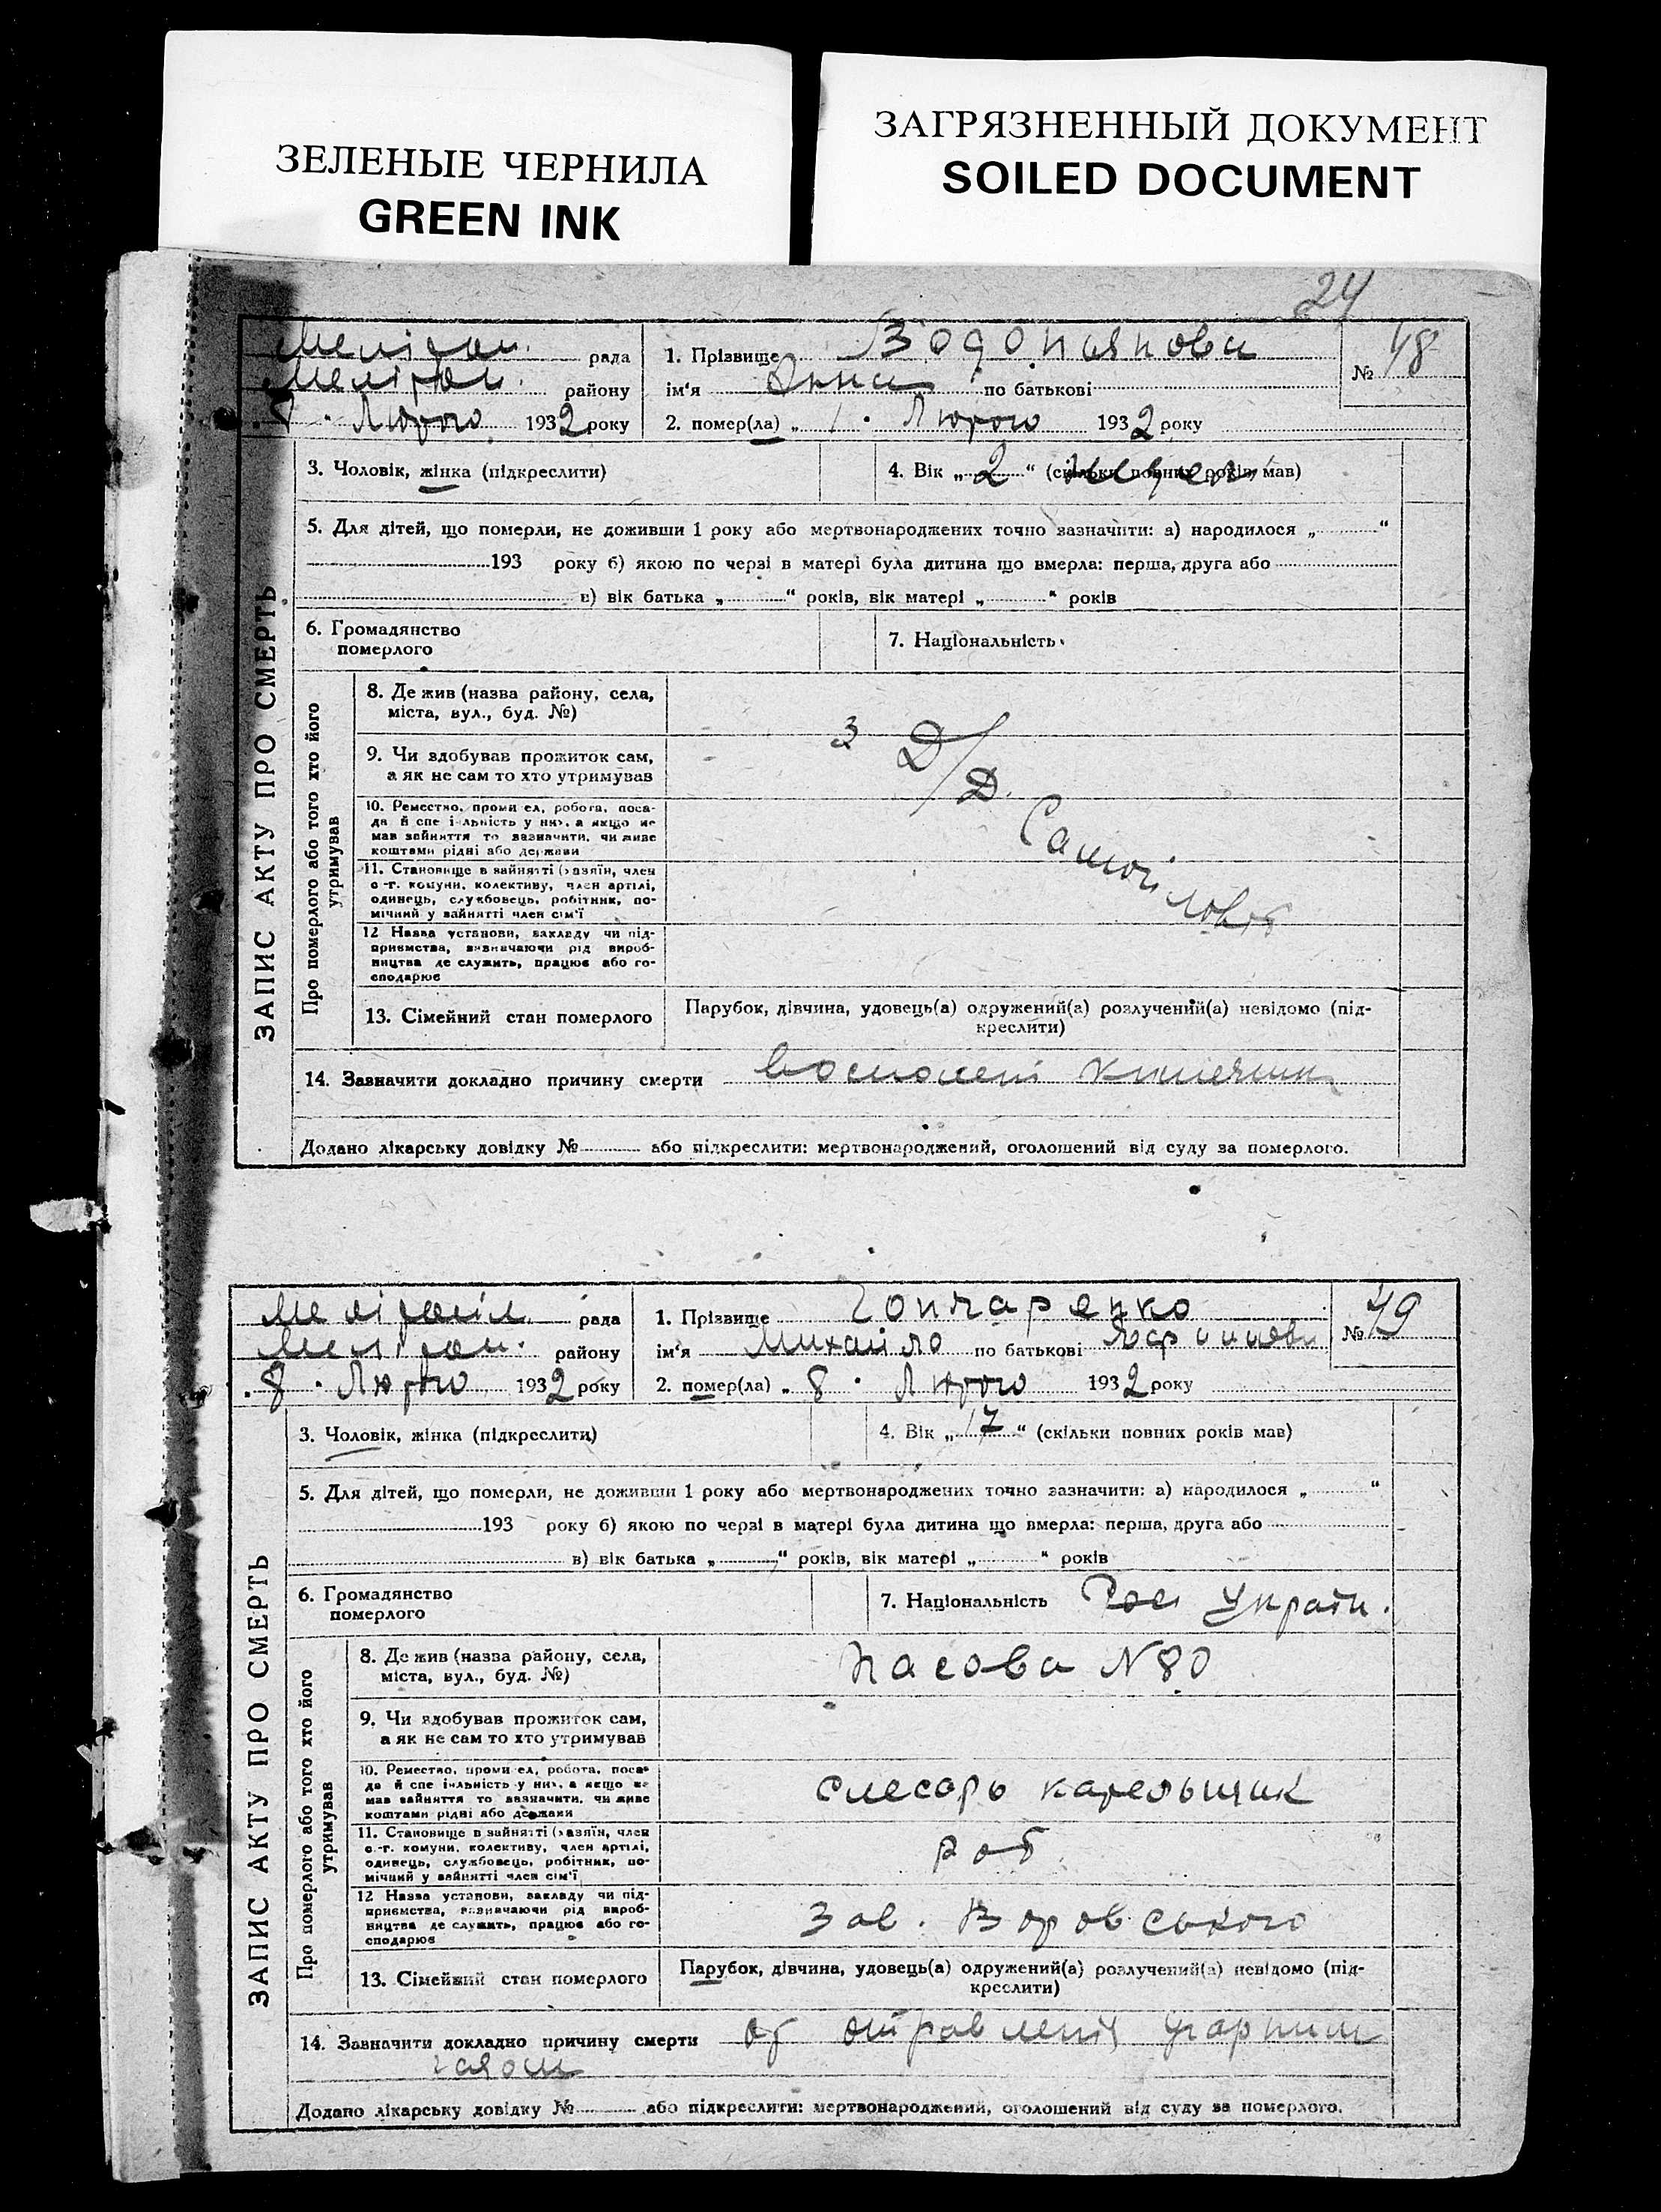 ЗЕЛЕНЫЕ ЧЕРНИЛА
GREEN INK
ЗАГРЯЗНЕННЫЙ ДОКУМЕНТ
SOILED DOCUMENT
24
ЗАПИС АКТУ ПРО СМЕРТЬ
Мелітоп. рада
Мелітоп. району
Лютого 1932 року
1. Прізвище Водопьянова
ім'я Анна по батькові
№ 48
2. помер(ла) „ 1 " Лютого 1932 року
3. Чоловік, жінка (підкреслити)
4. Вік „ 2 " (скільки повних років мав)
5. Для дітей, що померли, не доживши 1 року або мертвонароджених точно зазначити: а) народилося „ "
193 року б) якою по черзі в матері була дитина що вмерла: перша, друга або
в) вік батька „ " років, вік матері „ " років
6. Громадянство померлого
7. Національність
Про померлого або того хто його утримував
8. Де жив (назва району, села,
міста, вул., буд. №)
9. Чи здобував прожиток сам,
а як не сам то хто утримував
з Д/Д.
10. Ремество, промисел, робота, поса-
да й спеціяльність у них, а якщо не
мав зайняття то зазначити, чи живе
коштами рідні або держави
11. Становище в зайнятті (хазяїн, член
с.-г. комуни, колективу, член артілі,
одинець, службовець, робітник, по-
мічний у зайнятті член сім'ї
12 Назва установи, закладу чи під-
приємства, визначаючи рід вироб-
ництва де служить, працює або го-
сподарює
13. Сімейний стан померлого
Парубок, дівчина, удовець(а) одружений(а) розлучений(а) невідомо (під-
креслити)
14. Зазначити докладно причину смерти
Додано лікарську довідку № або підкреслити: мертвонароджений, оголошений від суду за померлого.
ЗАПИС АКТУ ПРО СМЕРТЬ
Мелітопіл рада
Мелітоп. району
„ 8 " Лютого 1932 року
1. Прізвище Гончаренко
ім'я Михайло по батькові
№ 49
2. помер(ла) „ 8 " Лютого 1932 року
3. Чоловік, жінка (підкреслити)
4. Вік „ 17 " (скільки повних років мав)
5. Для дітей, що померли, не доживши 1 року або мертвонароджених точно зазначити: а) народилося „ "
193 року б) якою по черзі в матері була дитина що вмерла: перша, друга або
в) вік батька „ " років, вік матері „ " років
6. Громадянство померлого
7. Національність Рос Україн.
Про померлого або того хто його утримував
8. Де жив (назва району, села,
міста, вул., буд. №)
N 80
9. Чи здобував прожиток сам,
а як не сам то хто утримував
10. Ремество, промисел, робота, поса-
да й спеціяльність у них, а якщо не
мав зайняття то зазначити, чи живе
коштами рідні або держави
слесарь
11. Становище в зайнятті (хазяїн, член
с.-г. комуни, колективу, член артілі,
одинець, службовець, робітник, по-
мічний у зайнятті член сім'ї
роб.
12 Назва установи, закладу чи під-
приємства, визначаючи рід вироб-
ництва де служить, працює або го-
сподарює
Зав. Воровського
13. Сімейний стан померлого
Парубок, дівчина, удовець(а) одружений(а) розлучений(а) невідомо (під-
креслити)
14. Зазначити докладно причину смерти от отравленія угарним
газом
Додано лікарську довідку № або підкреслити: мертвонароджений, оголошений від суду за померлого.